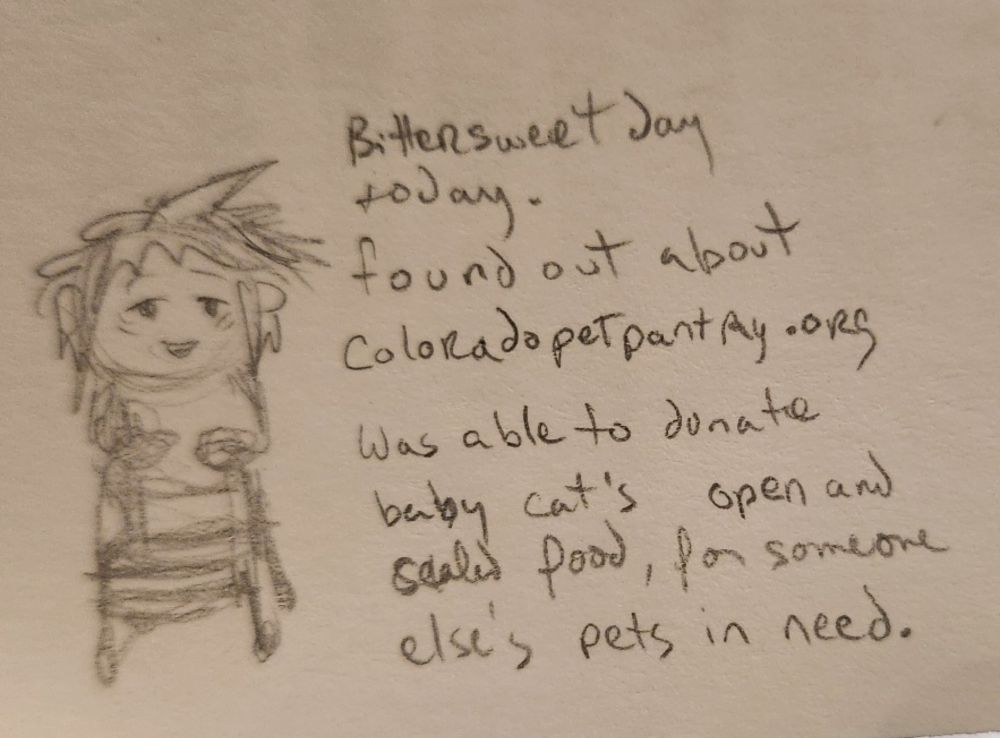 Bittersweet day
today.
found out about
coloradopetpantry.org
Was able to donate
baby cat's open and
sealed food, for someone
else's pets in need.